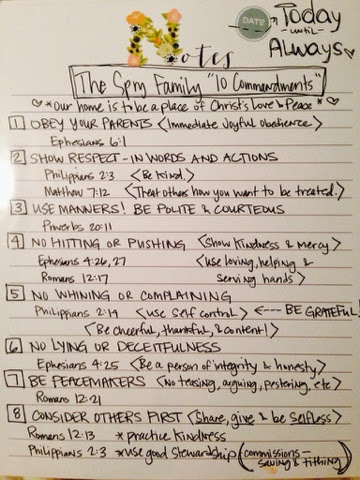 Notes
DATE → Today
until
Always ♡
The Spry Family "10 Commandments"
♡ *Our home is to be a place of Christ's Love & Peace * ♡
1 OBEY YOUR PARENTS <Immediate Joyful Obedience.>
Ephesians 6:1
2 SHOW RESPECT - IN WORDS AND ACTIONS
Philippians 2:3 <Be Kind.>
Matthew 7:12 <Treat others how you want to be treated.>
3 USE MANNERS! BE POLITE & COURTEOUS
Proverbs 20:11
4 NO HITTING OR PUSHING <Show Kindness & mercy>
Ephesians 4:26,27 <use loving, helping &
Romans 12:17 serving hands>
5 NO WHINING OR COMPLAINING
Philippians 2:14 <use self control> <--- BE GRATEFUL!
<Be cheerful, thankful, & content!>
6 NO LYING OR DECEITFULNESS
Ephesians 4:25 <Be a person of integrity & honesty>
7 BE PEACEMAKERS <No teasing, arguing, pestering, etc>
Romans 12:21
8 CONSIDER OTHERS FIRST <Share, give & be selfless>
Romans 12:13 *practice kindness
Philippians 2:3 *use good stewardship (commissions -
saving & tithing)